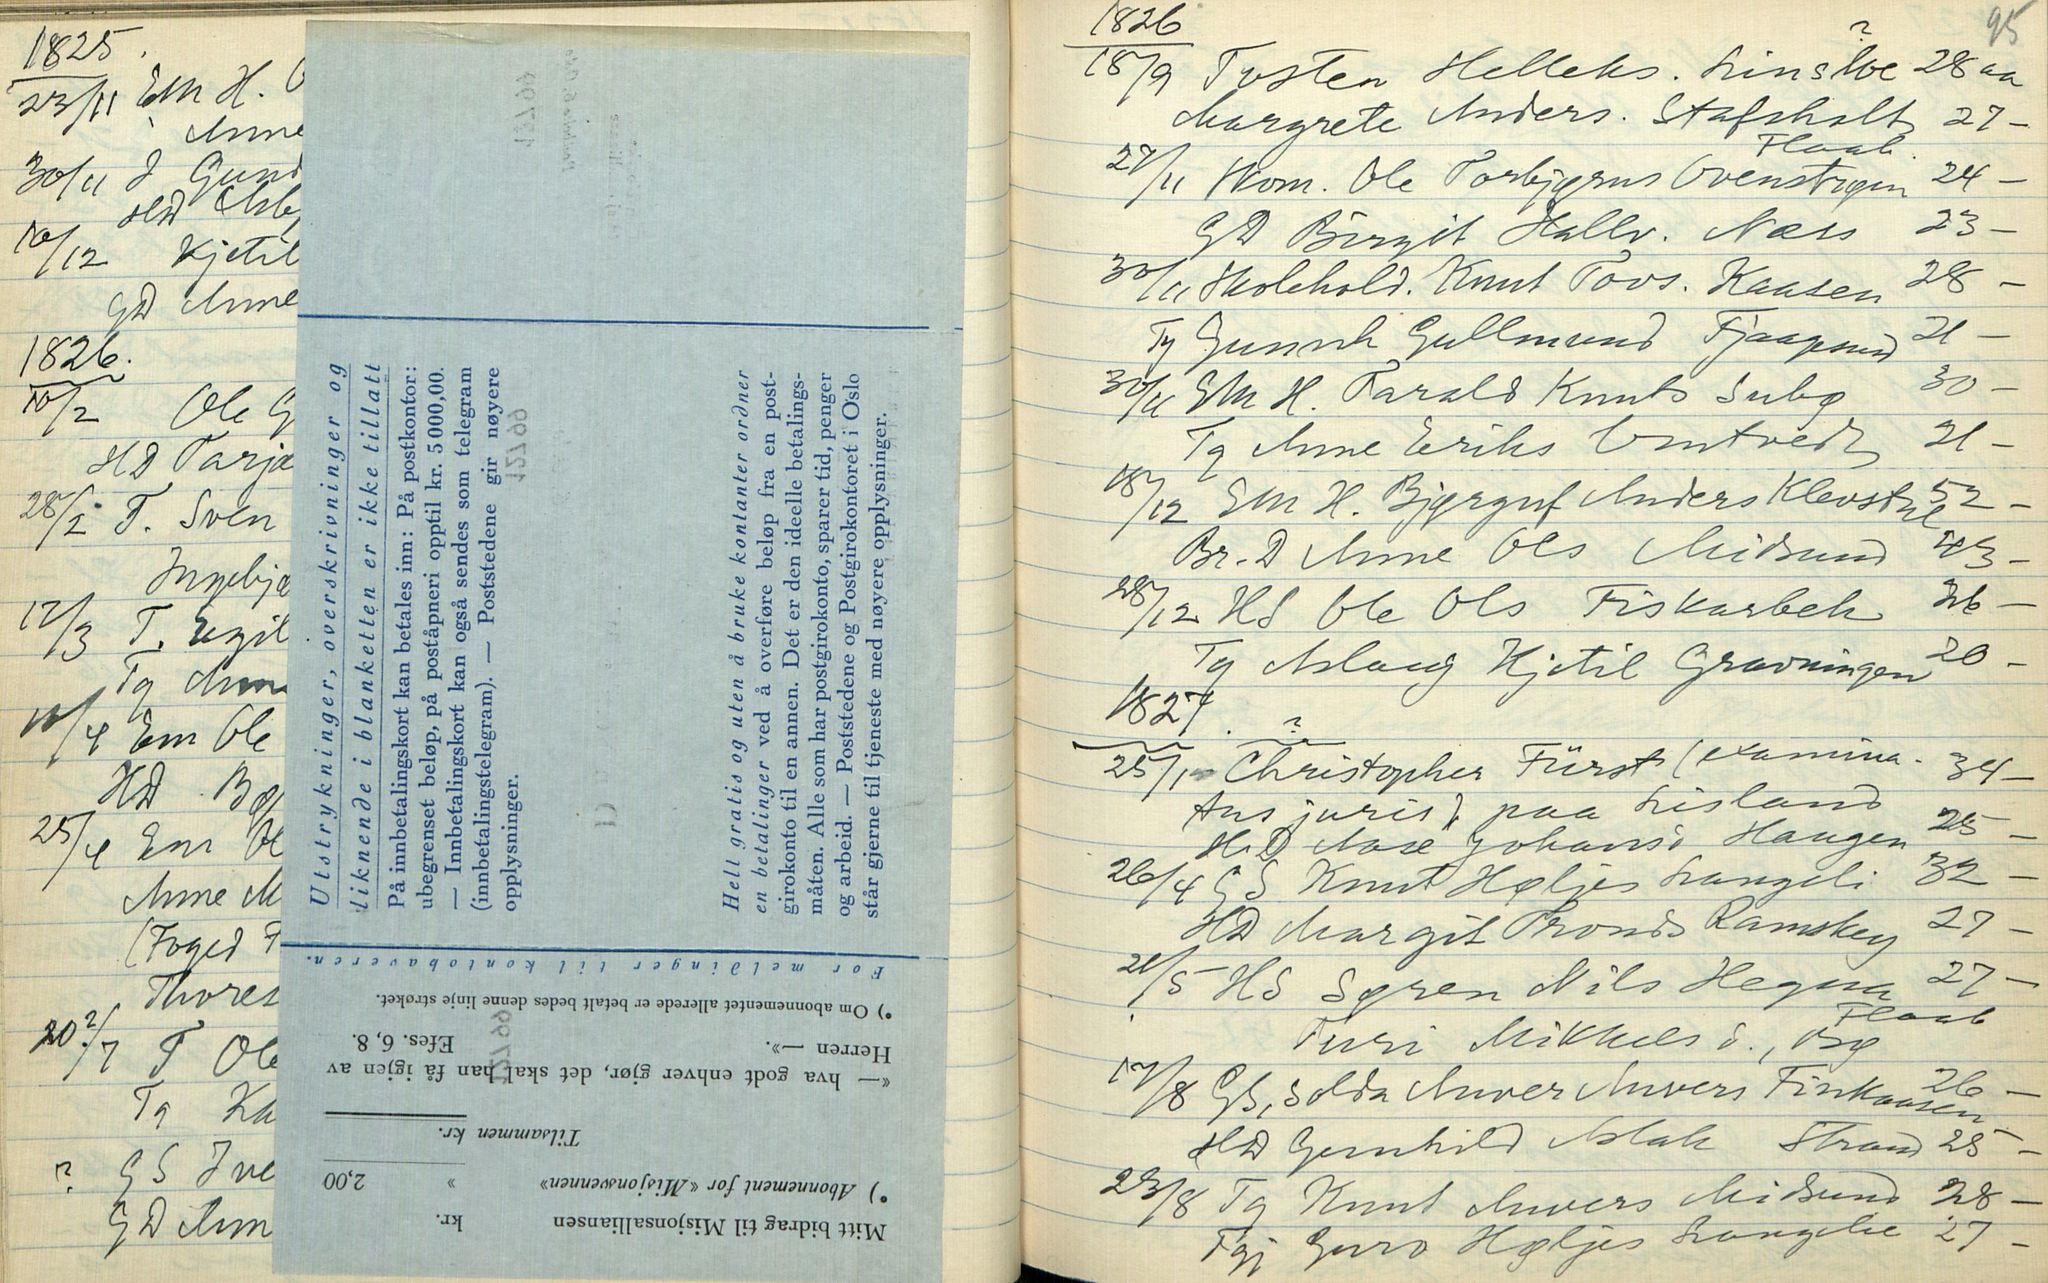 1825.
23/11 Em H.
Anne
30/11 J Gund
HD
10/12 Kjetil
GD Anne
1826.
10/2 Ole G
HD Tarjæ
28/2 T. Sven
Ingebjæ
12/3 T. Egil
Tg Anne
10/4 Em Ole
HD
25/4 Em Ol
Anne M
(Foged F
Thores
20?/7 T Ole
Tg Ka
? GS Ive
GD Ann
Utstrykninger, overskrivninger og
liknende i blanketten er ikke tillatt
På innbetalingskort kan betales inn: På postkontor:
ubegrenset beløp, på poståpneri opptil kr. 5 000,00.
— Innbetalingskort kan også sendes som telegram
(innbetalingstelegram). — Poststedene gir nøyere
opplysninger.
12799
12799
12799
Helt gratis og uten å bruke kontanter ordner
en betalinger ved å overføre beløp fra en post-
girokonto til en annen. Det er den ideelle betalings-
måten. Alle som har postgirokonto, sparer tid, penger
og arbeid. — Poststedene og Postgirokontoret i Oslo
står gjerne til tjeneste med nøyere opplysninger.
For meldinger til kontohaveren.
Mitt bidrag til Misjonsalliansen kr.
*) Abonnement for «Misjonsvennen» » 2,00
Tilsammen kr.
«— hva godt enhver gjør, det skal han få igjen av
Herren —». Efes. 6, 8.
*) Om abonnementet allerede er betalt bedes denne linje strøket.
95
1826
?
18/9 Tosten Helleks. Linsloe 28 aa
Margrete Anders. Stafsholt 27 –
Flaab.
27/11 Wom. Ole Torbjørns Ovenstigen 24 –
GD Birgit Hallv. Næss 23 –
30/11 Skolehold. Knut Tovs. Kaasen 28 –
Tg Gunnil Gullmund Fjaagesund 21 –
30/11 Em H. Tarald Knuts Subø 30 –
Tg Anne Eriks Omtvedt 21 –
18/12 Em H. Bjørguf Anders Klevstul 52 –
Br. D Anne Ols Midsund 43 –
28/12 HS Ole Ols Fiskarbek 26 –
Tg Aslaug Kjetil Gravningen 20 –
1827.
?
25/1 Christopher Fürst (examina- 34 –
tus juris) paa Lisland
H.D Aase Johansd Haugen 25 –
26/4 GS Knut Høljes Langeli 32 –
HD Margit Tronds Ramskey 27 –
21/5 HS Søren Nils Hegna 27 –
Flaab
Turi Mikkels d., Bø
17/8 GS, Solda Anver Anvers Finkaasen 26 –
HD Gunhild Aslak Strand 25 –
23/8 Tg Knut Anvers Midsund 28 –
Tgj Guro Høljes Langelie 27 –